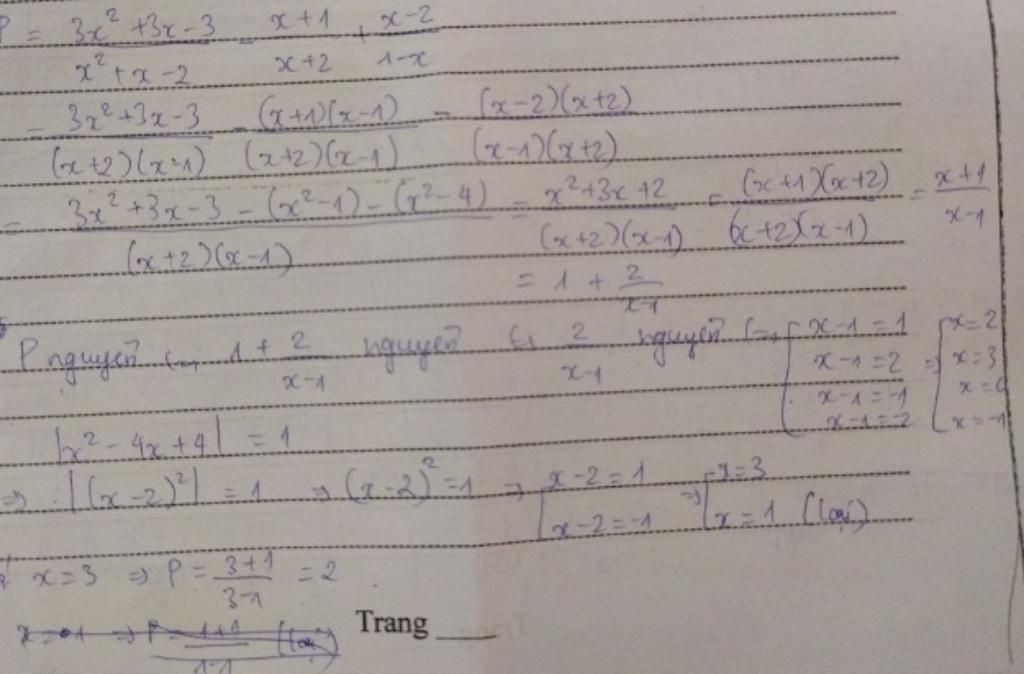 P = (3x² + 3x - 3)/(x² + x - 2) - (x+1)/(x+2) + (x-2)/(1-x)
= (3x² + 3x - 3)/((x+2)(x-1)) - ((x+1)(x-1))/((x+2)(x-1)) - ((x-2)(x+2))/((x-1)(x+2))
= (3x² + 3x - 3 - (x² - 1) - (x² - 4))/((x+2)(x-1)) = (x² + 3x + 2)/((x+2)(x-1)) = ((x+1)(x+2))/((x+2)(x-1)) = (x+1)/(x-1)
= 1 + 2/(x-1)
P nguyên ⇔ 1 + 2/(x-1) nguyên ⇔ 2/(x-1) nguyên ⇔ [ x-1 = 1 ⇒ [ x = 2
x-1 = 2 x = 3
x-1 = -1 x = 0
x-1 = -2 x = -1
|x² - 4x + 4| = 1
⇒ |(x-2)²| = 1 ⇒ (x-2)² = 1 ⇒ [ x-2 = 1 ⇒ [ x = 3
x-2 = -1 x = 1 (loại)
x = 3 ⇒ P = (3+1)/(3-1) = 2
Trang ____